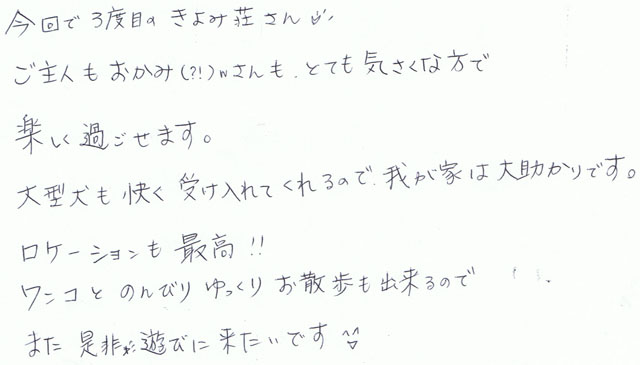 今回で3度目の きよみ荘さん
ご主人も おかみ(?!)wさんも、とても 気さくな方で
楽しく 過ごせます。
大型犬も 快く 受け入れてくれるので、我が家は 大助かりです。
ロケーションも 最高!!
ワンコと のんびり ゆっくり お散歩も出来るので
また 是非 遊びに来たいです